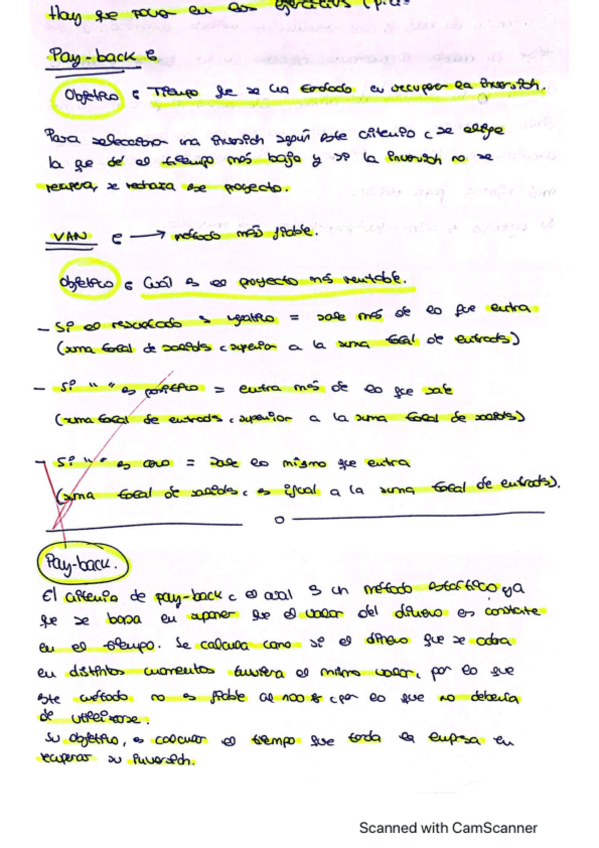 Hay que poner en los ejercicios (p.
Pay-back :
Objetivo : Tiempo que se ha tardado en recuperar la inversión.
Para seleccionar una inversión según este criterio, se elige
la que dé el tiempo más bajo y si la inversión no se
recupera, se rechaza ese proyecto.
VAN : → método más fiable.
Objetivo : Cuál es el proyecto más rentable.
- Si el resultado es negativo = sale más de lo que entra
(suma total de salidas, superior a la suma total de entradas)
- Si " " es positivo = entra más de lo que sale
(suma total de entradas, superior a la suma total de salidas)
- Si " " es cero = sale lo mismo que entra
(suma total de salidas, es igual a la suma total de entradas).
Pay-back.
El criterio de pay-back, el cual es un método estático ya
que se basa en suponer que el valor del dinero es constante
en el tiempo. Se calcula como si el dinero que se cobra
en distintos momentos tuviera el mismo valor, por lo que
este método no es fiable al 100%, por lo que no debería
de utilizarse.
Su objetivo, es calcular el tiempo que tarda la empresa en
recuperar su inversión.
Scanned with CamScanner